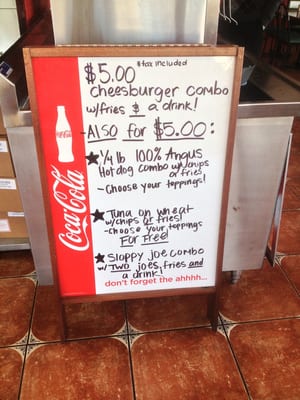 *tax included
$5.00
cheesburger combo
w/fries & a drink!
-ALSO for $5.00:
★ 1/4 lb 100% Angus
Hot dog combo w/chips
or fries
- Choose your toppings!
★ Tuna on wheat
w/chips or fries!
- Choose your toppings
For Free!
★ Sloppy Joe combo
w/ TWO joes, fries and
a drink!
don't forget the ahhhh...
Coca-Cola
Coca-Cola